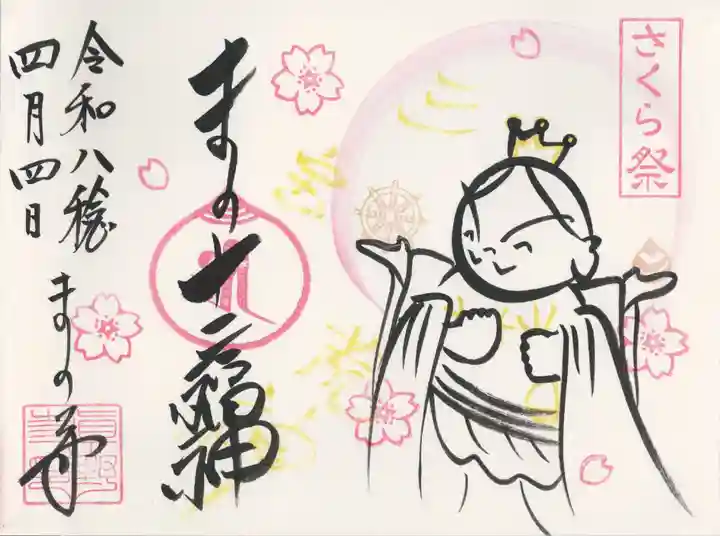 さくら祭
まの十二福神
令和八稔
四月四日
まの寺